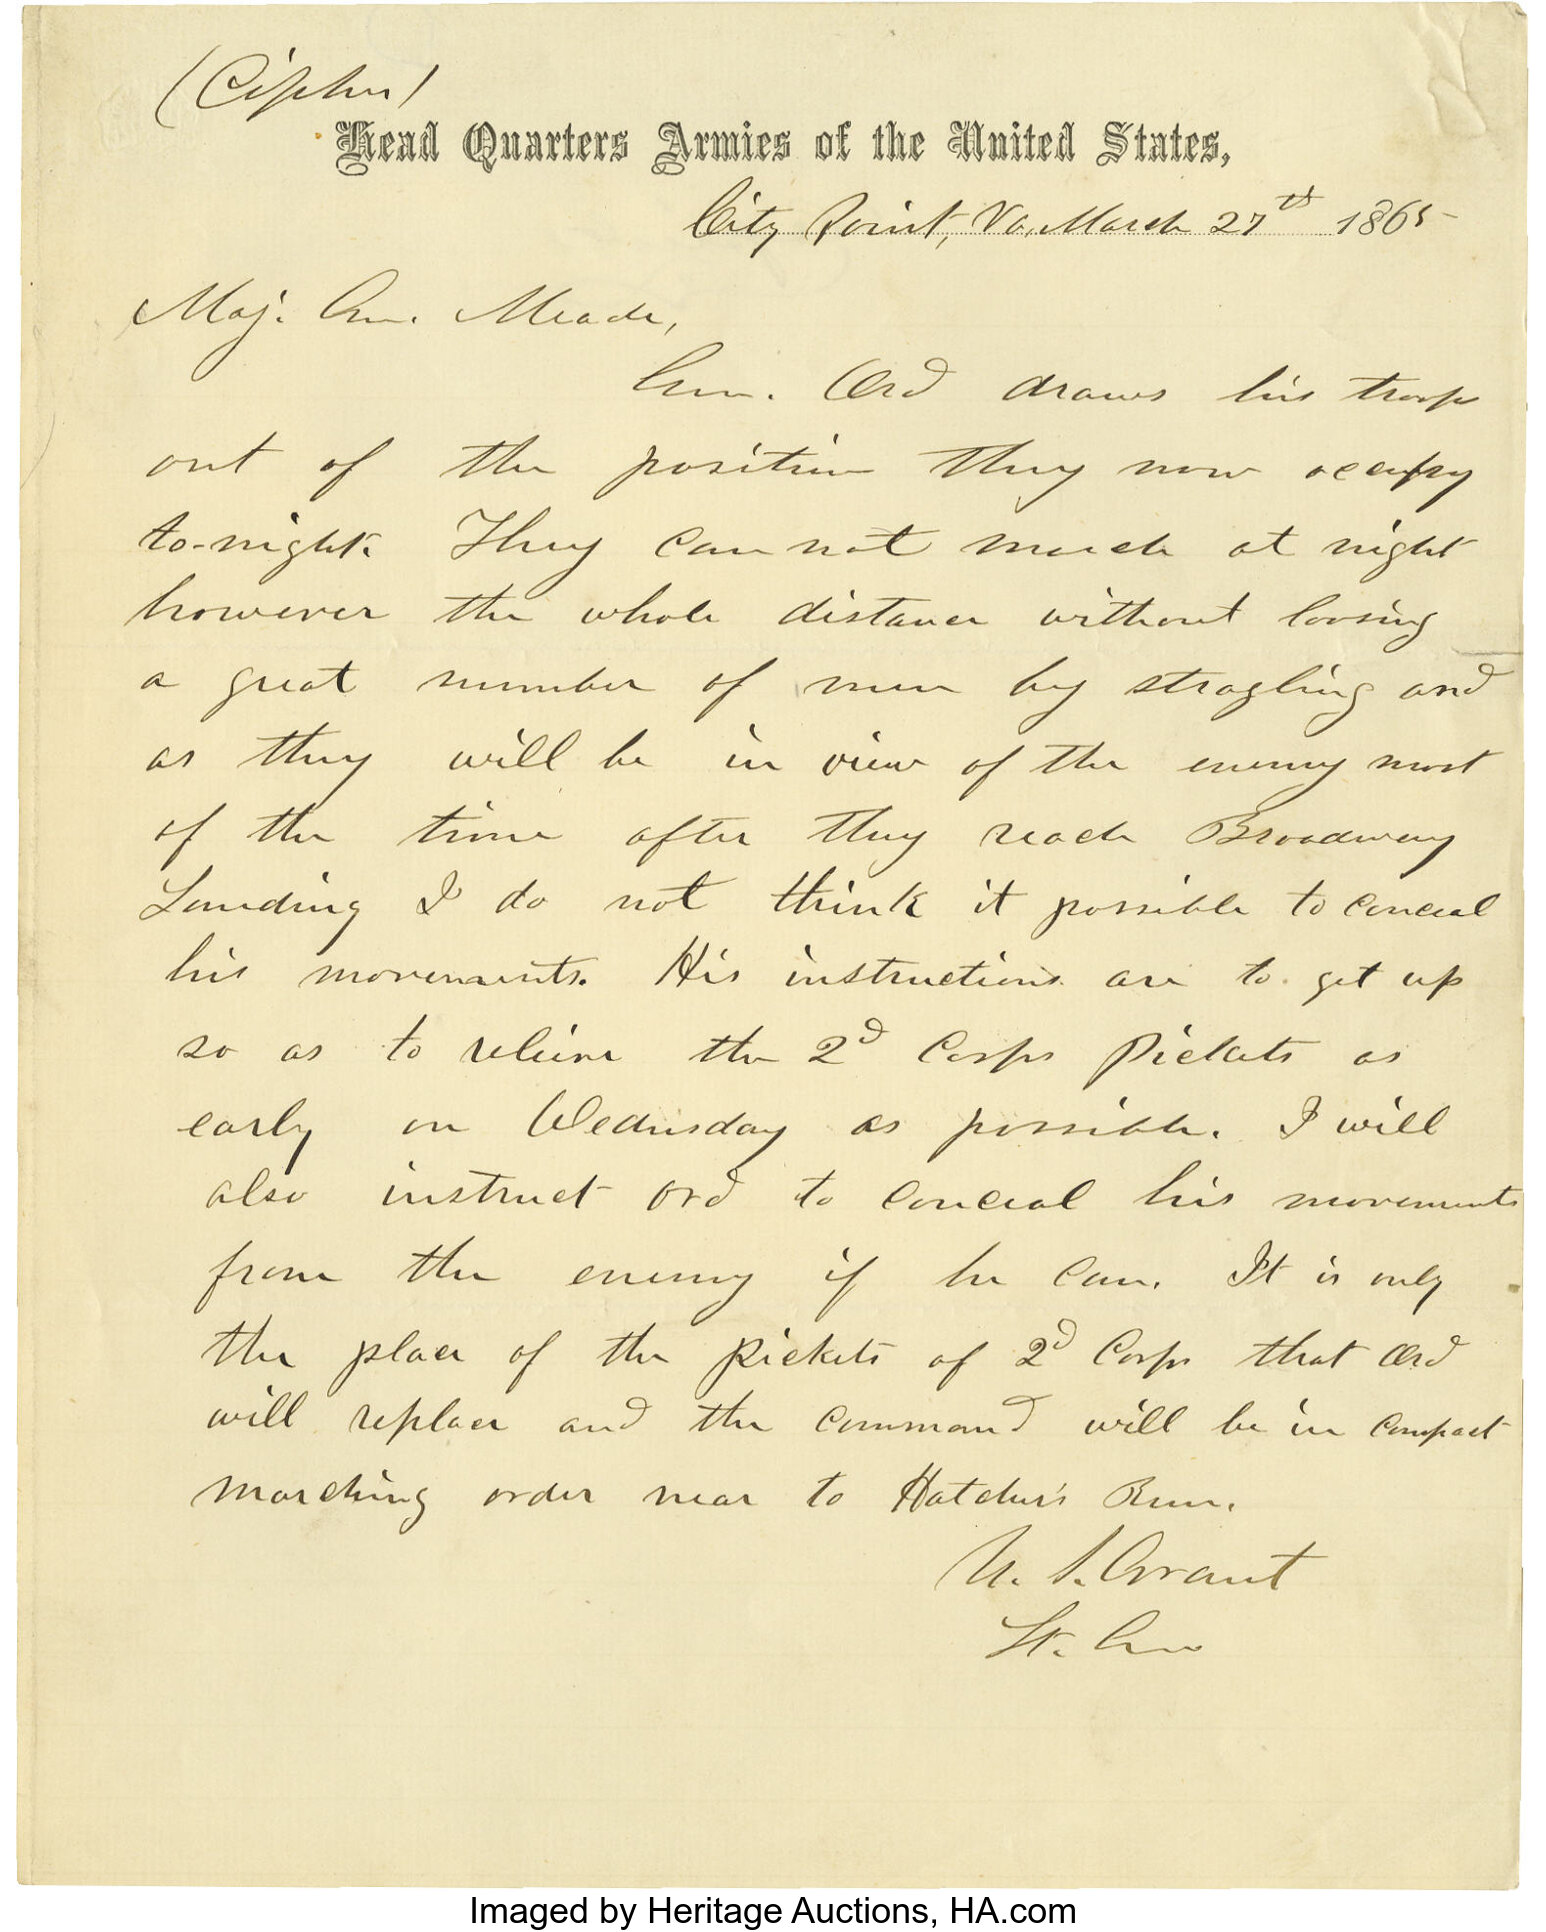 (Cipher)
Head Quarters Armies of the United States,
City Point, Va, March 27th 1865
Maj. Gen. Meade,
Gen. Ord draws his troops
out of the position they now occupy
to-night. They can not march at night
however the whole distance without loosing
a great number of men by stragling and
as they will be in view of the enemy most
of the time after they reach Broadway
Landing I do not think it possible to conceal
his movements. His instructions are to get up
so as to relieve the 2d Corps Pickets as
early on Wednesday as possible. I will
also instruct Ord to conceal his movements
from the enemy if he can. It is only
the place of the pickets of 2d Corps that Ord
will replace and the command will be in compact
marching order near to Hatcher's Run.
U. S. Grant
Lt. Gen
Imaged by Heritage Auctions, HA.com